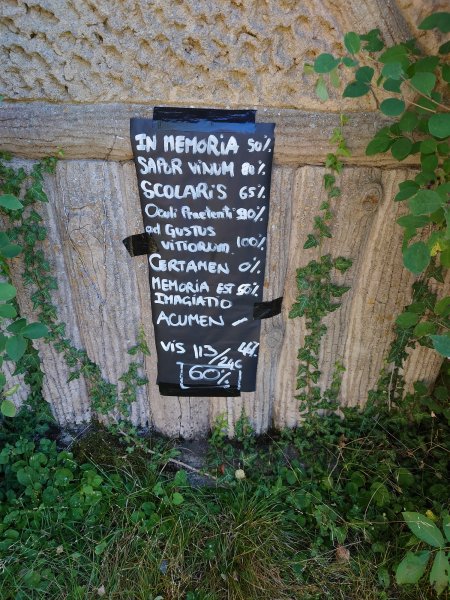 IN MEMORIA 50%
SAPOR VINUM 80%
SCOLARIS 65%
Oculi Praetenti 90%
ad GUSTUS
VITIORUM 100%
CERTAMEN 0%
MEMORIA EST 50%
IMAGIATIO
ACUMEN —
VIS 113/246 46%
60%